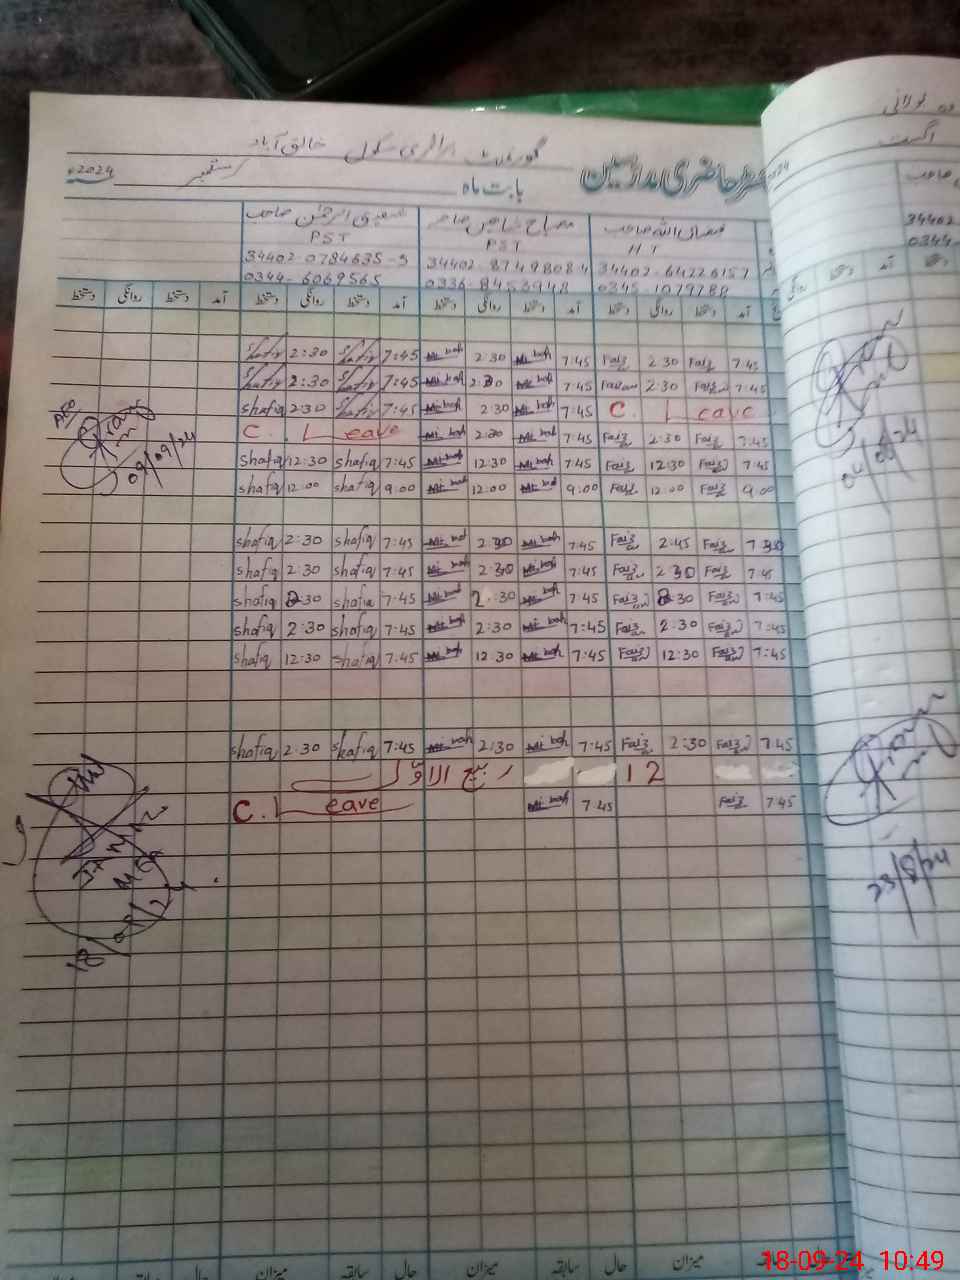 گورنمنٹ پرائمری سکول خالق آباد
رجسٹر حاضری مدارسین
بابت ماہ ستمبر 2024ء
فیض اللہ صاحب مصباح شاہین صاحبہ شفیق الرحمٰن صاحب
HT PST PST
34402-64226157 34402-8749808 34402-0784635-5
0345-1079788 0336-8453948 0344-6069565
آمد دستخط روانگی دستخط آمد دستخط روانگی دستخط آمد دستخط روانگی دستخط آمد دستخط روانگی دستخط
shafiq 2:30 shafiq 7:45 Mis bah 2:30 Mis bah 7:45 Faiz 2:30 Faiz 7:45
shafiq 2:30 shafiq 7:45 Mis bah 2:30 Mis bah 7:45 2:30 Faiz 7:45
shafiq 2:30 shafiq 7:45 Mis bah 2:30 Mis bah 7:45 C. Leave
C. Leave Mis bah 2:30 Mis bah 7:45 Faiz 2:30 Faiz 7:45
shafiq 12:30 shafiq 7:45 Mis bah 12:30 Mis bah 7:45 Faiz 12:30 Faiz 7:45
shafiq 12:00 shafiq 9:00 Mis bah 12:00 Mis bah 9:00 Faiz 12:00 Faiz 9:00
shafiq 2:30 shafiq 7:45 Mis bah 2:30 Mis bah 7:45 Faiz 2:45 Faiz 7:30
shafiq 2:30 shafiq 7:45 Mis bah 2:30 Mis bah 7:45 Faiz 2:30 Faiz 7:45
shafiq 2:30 shafiq 7:45 Mis bah 2:30 Mis bah 7:45 Faiz 2:30 Faiz 7:45
shafiq 2:30 shafiq 7:45 Mis bah 2:30 Mis bah 7:45 Faiz 2:30 Faiz 7:45
shafiq 12:30 shafiq 7:45 Mis bah 12:30 Mis bah 7:45 Faiz 12:30 Faiz 7:45
shafiq 2:30 shafiq 7:45 Mis bah 2:30 Mis bah 7:45 Faiz 2:30 Faiz 7:45
12 ربیع الاول
C. Leave Mis bah 7:45 Faiz 7:45
AEO
09/09/24
MEA
18/09/24
میزان سابقہ حال میزان سابقہ حال میزان سابقہ حال
جولائی
اگست
34402
0344-
آمد دستخط روانگی
04/09/24
23/8/24
18-09-24 10:49